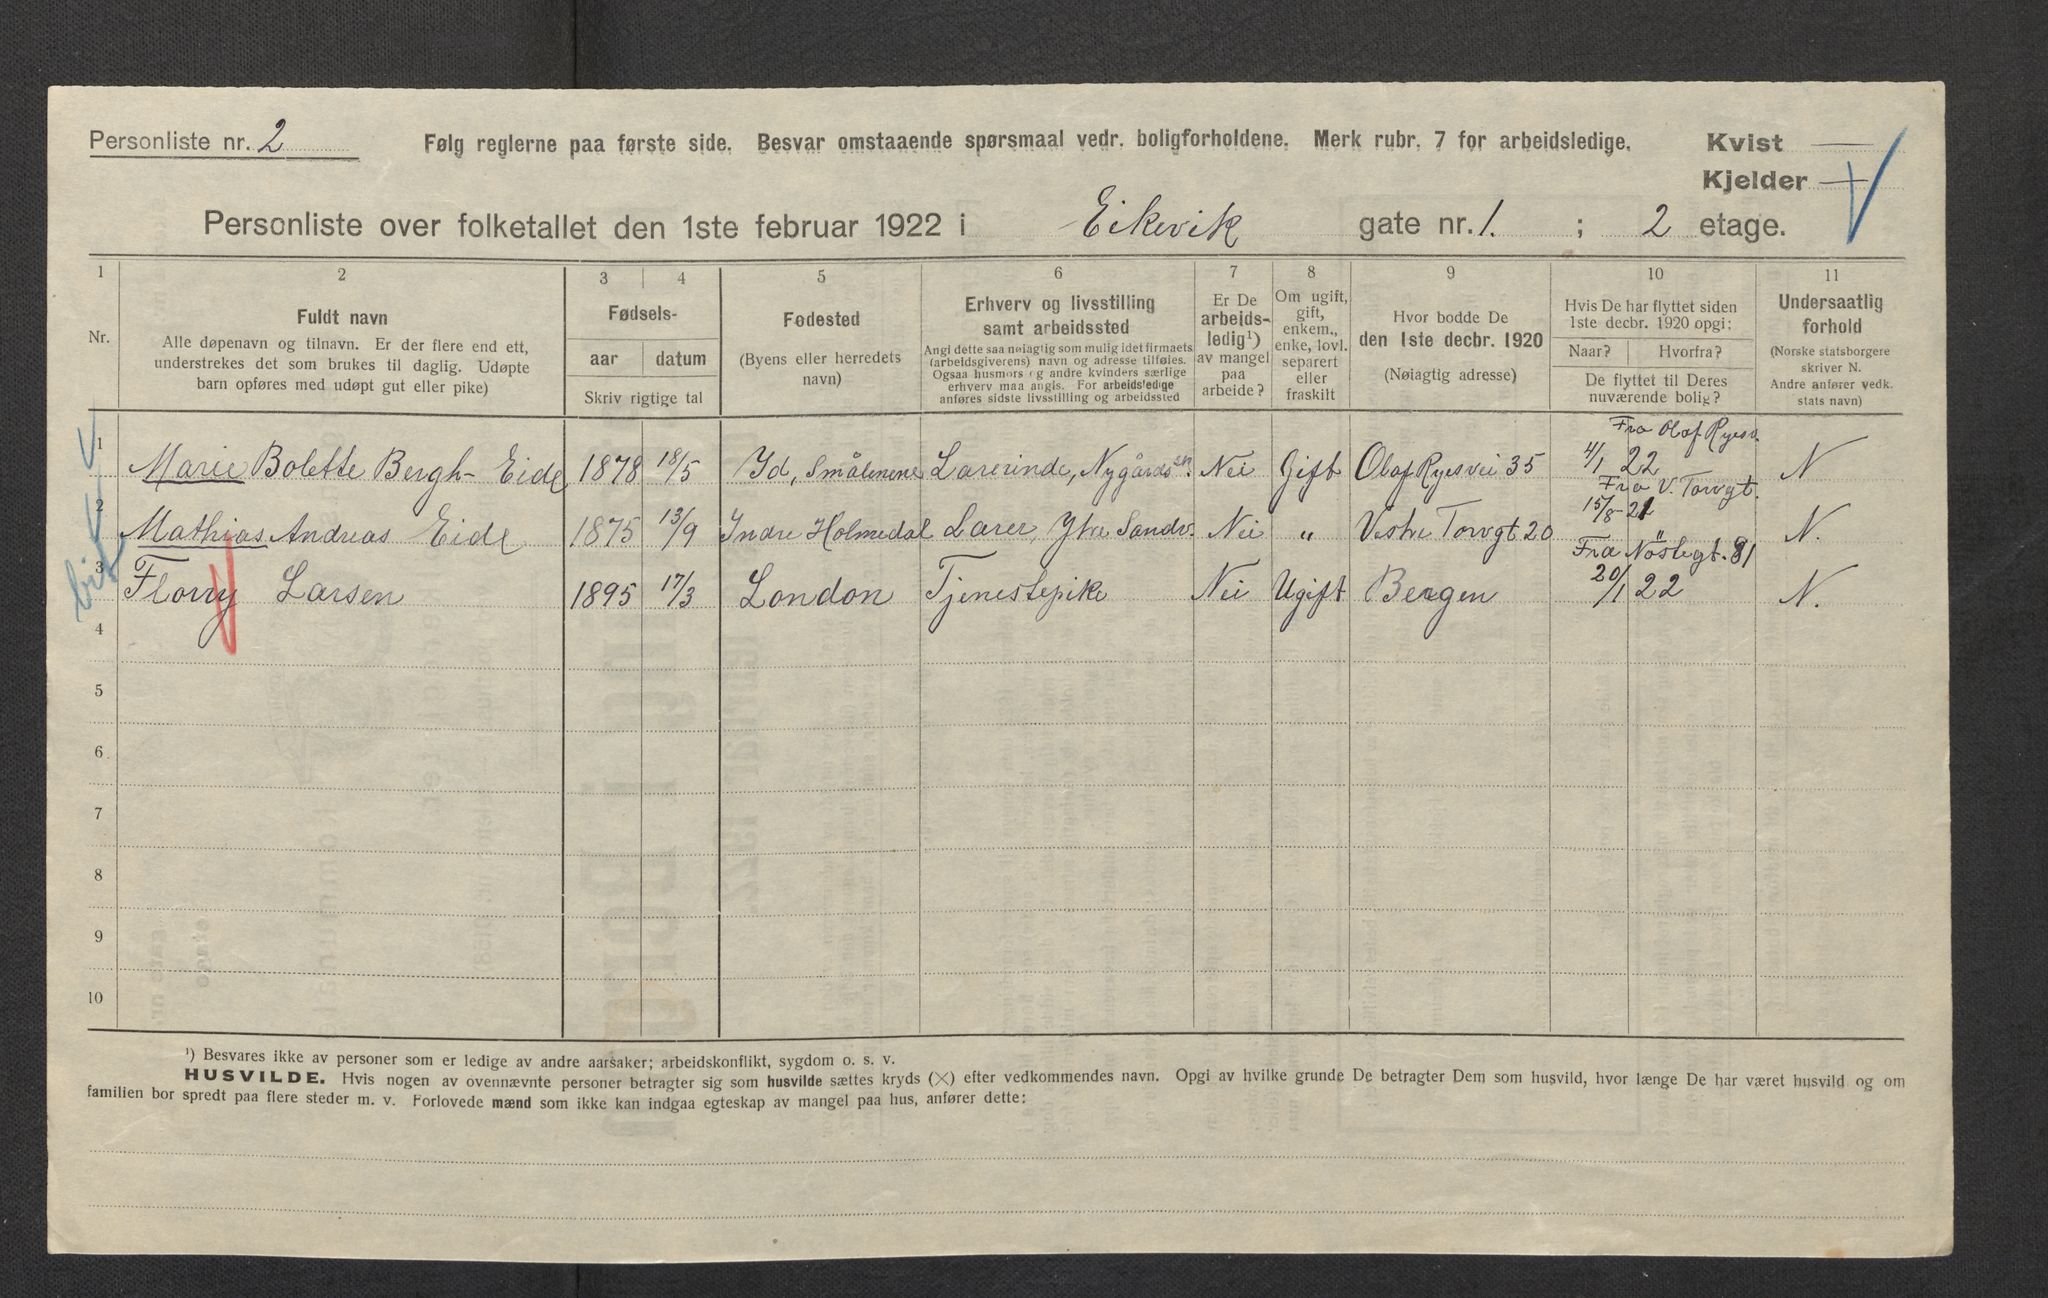 Personliste nr. 2
Følg reglerne paa første side. Besvar omstaaende spørsmaal vedr. boligforholdene. Merk rubr. 7 for arbeidsledige.
Kvist —
Kjelder —
Personliste over folketallet den 1ste februar 1922 i Eikevik gate nr. 1. ; 2 etage.
1 2 3 4 5 6 7 8 9 10 11
Nr.
Fuldt navn
Alle døpenavn og tilnavn. Er der flere end ett,
understrekes det som brukes til daglig. Udøpte
barn opføres med udøpt gut eller pike)
Fødsels-
aar datum
Skriv rigtige tal
Fødested
(Byens eller herredets
navn)
Erhverv og livsstilling
samt arbeidssted
Angi dette saa nøiagtig som mulig idet firmaets
(arbeidsgiverens) navn og adresse tilføies.
Ogsaa husmors og andre kvinders særlige
erhverv maa angis. For arbeidsledige
anføres sidste livsstilling og arbeidssted
Er De
arbeids-
ledig¹)
av mangel
paa
arbeide?
Om ugift,
gift,
enkem.,
enke, lovl.
separert
eller
fraskilt
Hvor bodde De
den 1ste decbr. 1920
(Nøiagtig adresse)
Hvis De har flyttet siden
1ste decbr. 1920 opgi:
Naar? Hvorfra?
De flyttet til Deres
nuværende bolig?
Undersaatlig
forhold
(Norske statsborgere
skriver N.
Andre anfører vedk.
stats navn)
Fra Olaf Ryesv.
1 Marie Bolette Bergh-Eide 1878 18/5 Id, Smålenene Lærerinde, Nygårds sn. Nei Gift Olaf Ryesvei 35 4/1 22 N
Fra V. Torvgt.
2 Mathias Andreas Eide 1875 13/9 Indre Holmedal Lærer, Ytre Sandv. Nei " Vestre Torvgt 20 15/8-21 N.
Fra Nöstegt. 81
3 Florry Larsen 1895 17/3 London Tjenestepike Nei Ugift Bergen 20/1 22 N.
4
5
6
7
8
9
10
¹) Besvares ikke av personer som er ledige av andre aarsaker; arbeidskonflikt, sygdom o. s. v.
HUSVILDE. Hvis nogen av ovennævnte personer betragter sig som husvilde sættes kryds (×) efter vedkommendes navn. Opgi av hvilke grunde De betragter Dem som husvild, hvor længe De har været husvild og om
familien bor spredt paa flere steder m. v. Forlovede mænd som ikke kan indgaa egteskap av mangel paa hus, anfører dette: